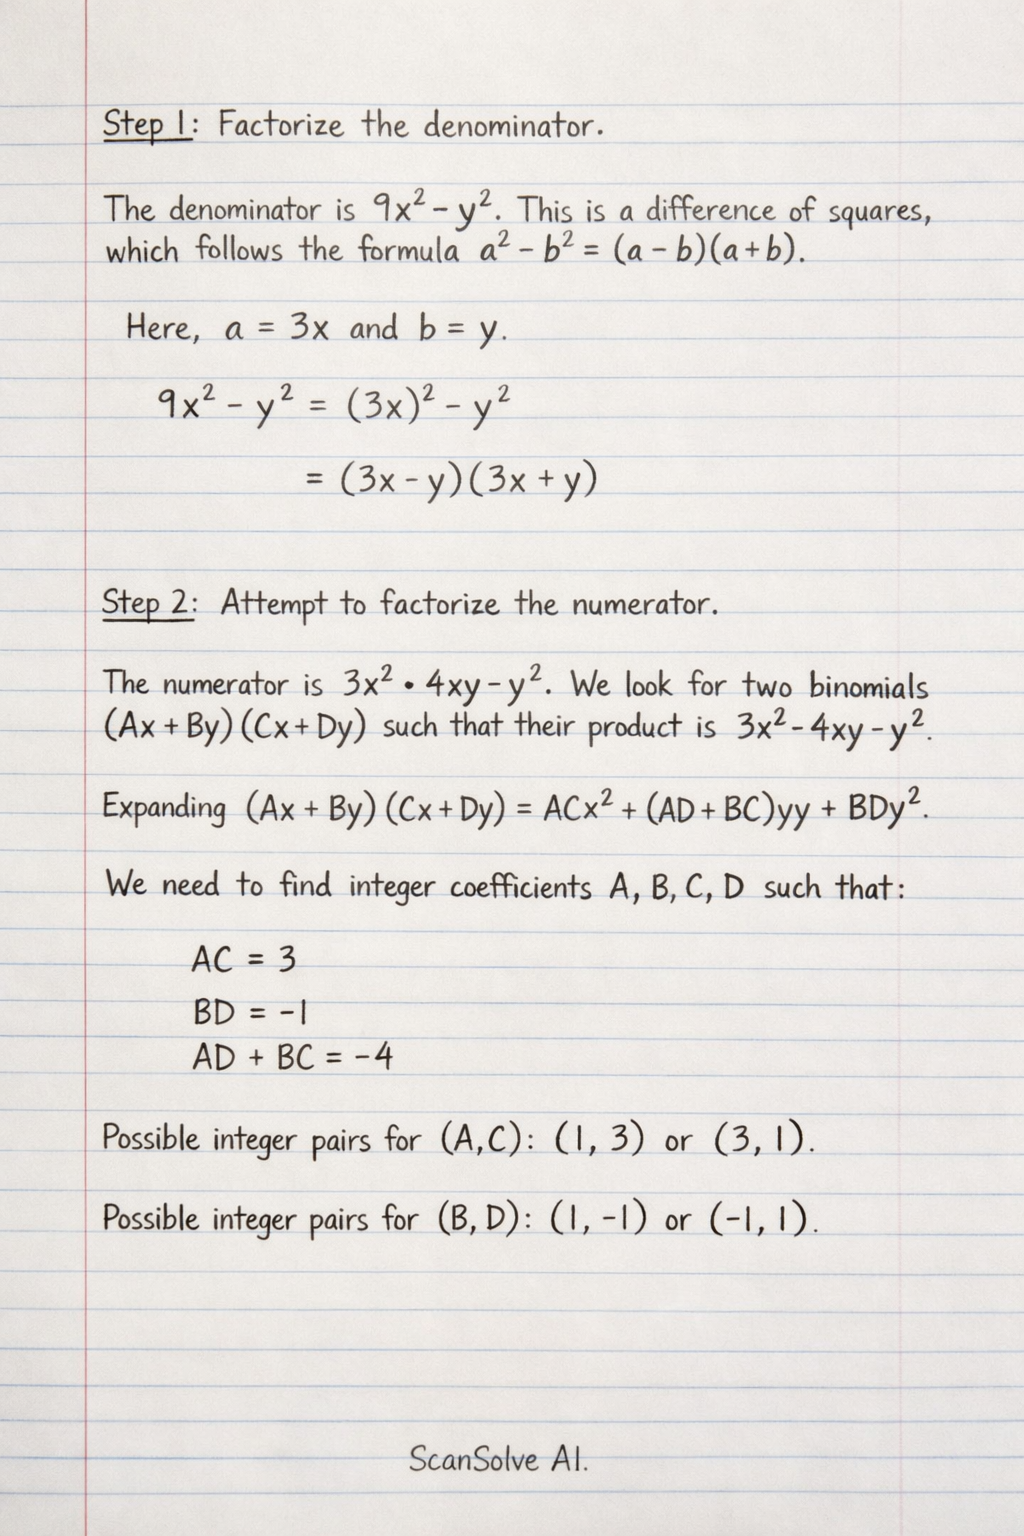 Step 1: Factorize the denominator.
The denominator is 9x² - y². This is a difference of squares,
which follows the formula a² - b² = (a - b)(a + b).
Here, a = 3x and b = y.
9x² - y² = (3x)² - y²
= (3x - y)(3x + y)
Step 2: Attempt to factorize the numerator.
The numerator is 3x² • 4xy - y². We look for two binomials
(Ax + By)(Cx + Dy) such that their product is 3x² - 4xy - y².
Expanding (Ax + By)(Cx + Dy) = ACx² + (AD + BC)yy + BDy².
We need to find integer coefficients A, B, C, D such that:
AC = 3
BD = -1
AD + BC = -4
Possible integer pairs for (A,C): (1, 3) or (3, 1).
Possible integer pairs for (B, D): (1, -1) or (-1, 1).
ScanSolve AI.